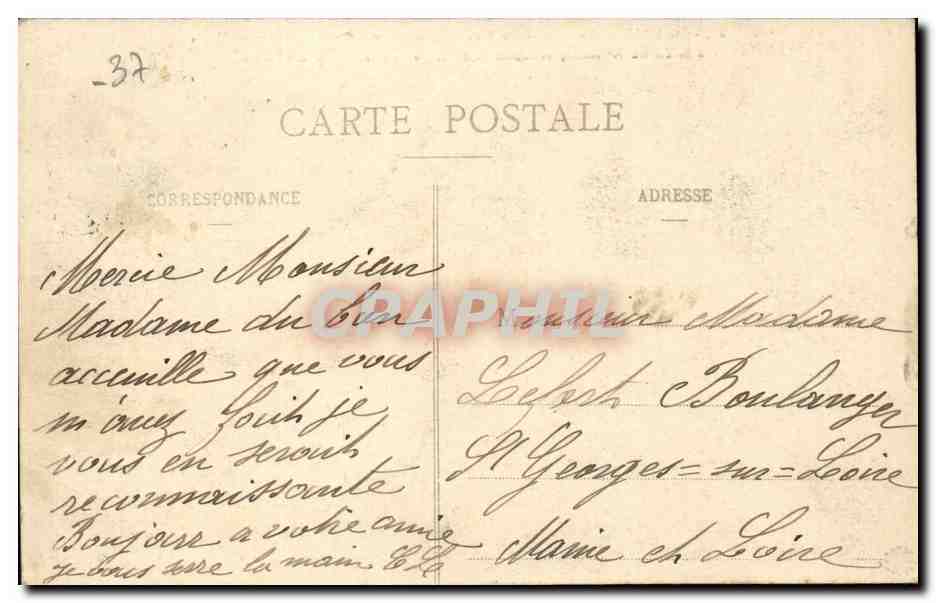 -37
CARTE POSTALE
CORRESPONDANCE
Mercie Monsieur
Madame du bien
acceuille que vous
m'avez fait je
vous en serait
reconnaissante
Bonjour a votre amie
je vous serre la main
ADRESSE
Monsieur Madame
Lefort Boulanger
St Georges=sur=Loire
Maine et Loire
GRAPHIL